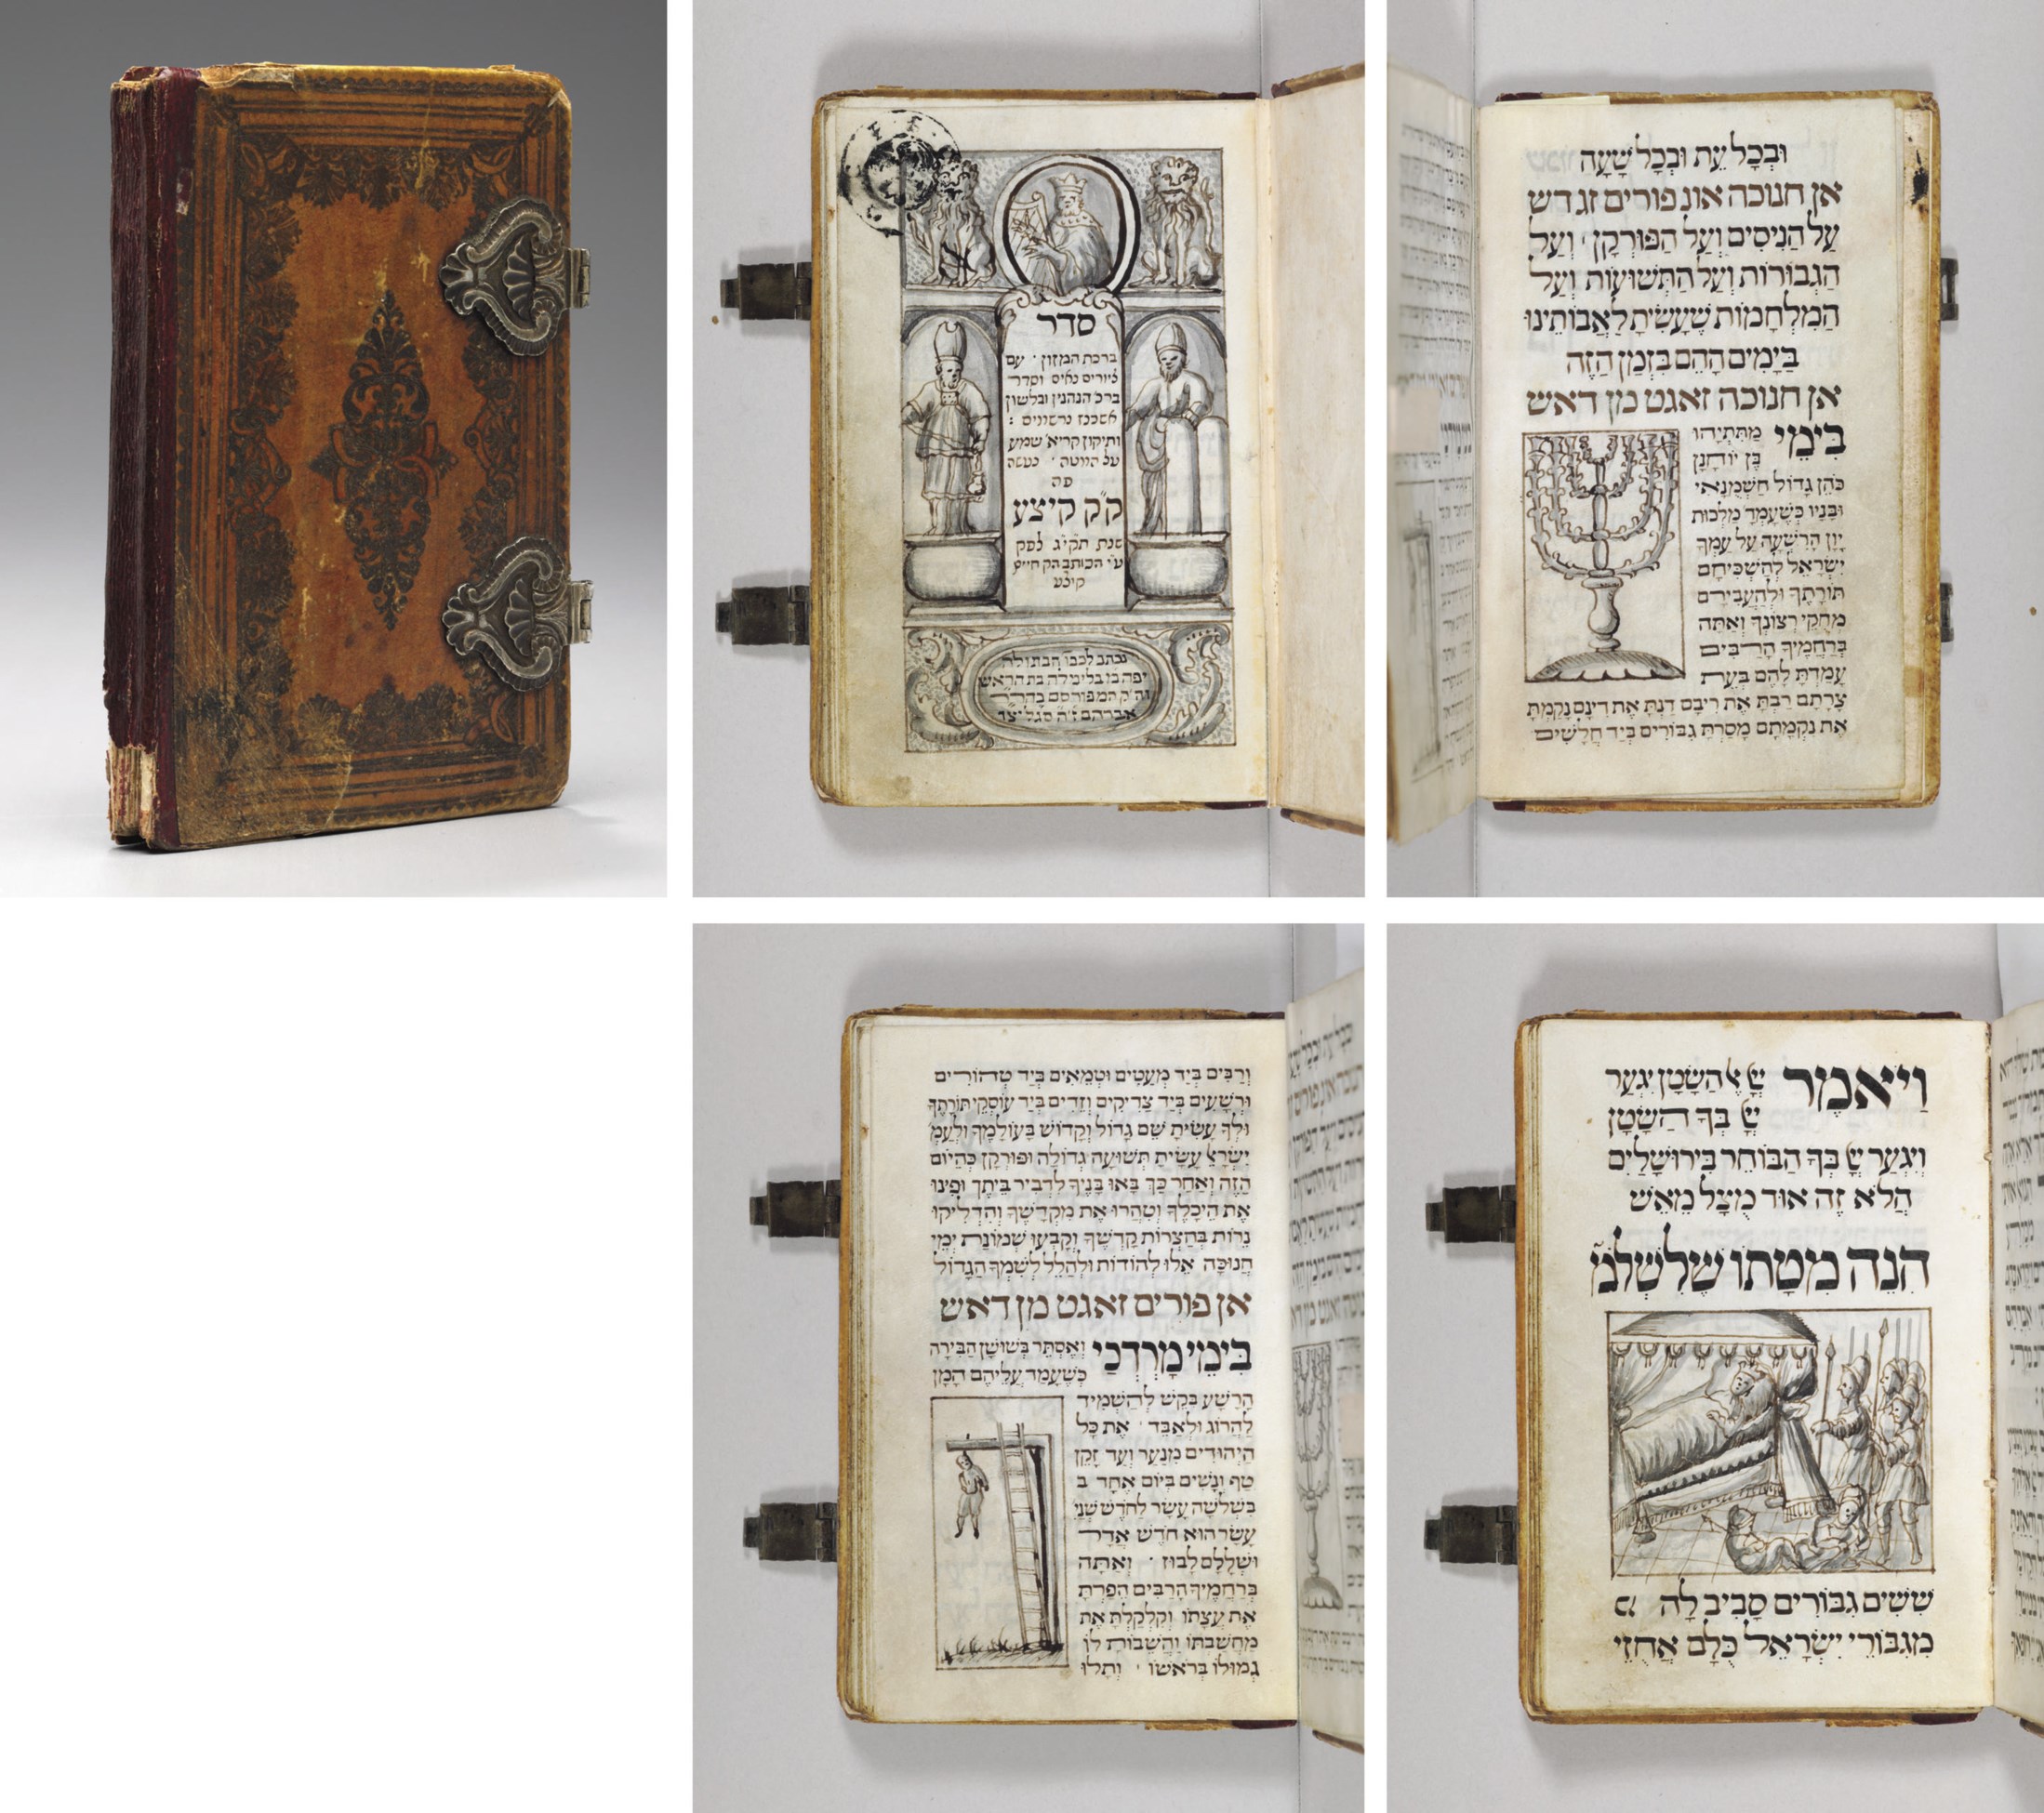 סדר
ברכת המזון · עם
ציורים נאים וסדר
ברכ הנהנין ובלשון
אשכנז נרשונים :
ותיקון קריא שמע
על המטה · נעשה
פה
ק״ק קיצע
שנת תקי״ג לפק
ע״י הכותב הק חיים
קיצע
נכתב לכבו הבתולה
יפה בלימלה בת הראש
המפורסם כהר״ר
אברהם סגל
וּבְכָל עֵת וּבְכָל שָׁעָה
אן חנוכה אונ פורים זגדש
עַל הַנִיסִים וְעַל הַפּוּרְקָן · וְעַל
הַגְבוּרוֹת וְעַל הַתְּשׁוּעוֹת וְעַל
הַמִלְחָמוֹת שֶׁעָשִׂיתָ לַאֲבוֹתֵינוּ
בַּיָמִים הָהֵם בִּזְמַן הַזֶה
אן חנוכה זאגט מן דאש
בִּימֵי מַתִּתְיָהוּ
בֶּן יוֹחָנָן
כֹּהֵן גָדוֹל חַשְׁמֻנָאִי
וּבָנָיו כְּשֶׁעָמְדָ מַלְכוּת
יָוָן הָרְשָׁעָה עַל עַמְךָ
יִשְׂרָאֵל לְהַשְׁכִּיחָם
תּוֹרָתֶךָ וּלְהַעֲבִירָם
מֵחֻקֵי רְצוֹנֶךָ וְאַתָּה
בְּרַחֲמֶיךָ הָרַבִּים
עָמַדְתָּ לָהֶם בְּעֵת
צָרָתָם רַבְתָּ אֶת רִיבָם דַנְתָּ אֶת דִינָם נָקַמְתָּ
אֶת נִקְמָתָם מָסַרְתָּ גִבּוֹרִים בְּיַד חֲלָשִׁים
וְרַבִּים בְּיַד מְעַטִים וּטְמֵאִים בְּיַד טְהוֹרִים
וּרְשָׁעִים בְּיַד צַדִיקִים וְזֵדִים בְּיַד עוֹסְקֵי תוֹרָתֶךָ
וּלְךָ עָשִׂיתָ שֵׁם גָדוֹל וְקָדוֹשׁ בְּעוֹלָמֶךָ וּלְעַמְ
יִשְׂרָאֵ עָשִׂיתָ תְּשׁוּעָה גְדוֹלָה וּפוּרְקָן כְּהַיוֹם
הַזֶה וְאַחַר כָּךְ בָּאוּ בָּנֶיךָ לִדְבִיר בֵּיתֶךָ וּפִינוּ
אֶת הֵיכָלֶךָ וְטִהֲרוּ אֶת מִקְדָשֶׁךָ וְהִדְלִיקוּ
נֵרוֹת בְּחַצְרוֹת קָדְשֶׁךָ וְקָבְעוּ שְׁמוֹנַת יְמֵי
חֲנוּכָּה אֵלוּ לְהוֹדוֹת וּלְהַלֵל לְשִׁמְךָ הַגָדוֹל
אן פורים זאגט מן דאש
בִּימֵי מָרְדְכַי וְאֶסְתֵּר בְּשׁוּשַׁן הַבִּירָה
כְּשֶׁעָמַד עֲלֵיהֶם הָמָן
הָרָשָׁע בִּקֵשׁ לְהַשְׁמִיד
לַהֲרוֹג וּלְאַבֵּד · אֶת כָּל
הַיְהוּדִים מִנַעַר וְעַד זָקֵן
טַף וְנָשִׁים בְּיוֹם אֶחָד ב
בִּשְׁלֹשָׁה עָשָׂר לְחֹדֶשׁ שְׁנֵי
עָשָׂר הוּא חֹדֶשׁ אֲדָר
וּשְׁלָלָם לָבוֹז · וְאַתָּה
בְּרַחֲמֶיךָ הָרַבִּים הֵפַרְתָּ
אֶת עֲצָתוֹ וְקִלְקַלְתָּ אֶת
מַחֲשַׁבְתּוֹ וַהֲשֵׁבוֹתָ לוֹ
גְמוּלוֹ בְּרֹאשׁוֹ · וְתָלוּ
וַיֹאמֶר יְיָ אֶל הַשָׂטָן יִגְעַר
יְיָ בְּךָ הַשָׂטָן
וְיִגְעַר יְיָ בְּךָ הַבּוֹחֵר בִּירוּשָׁלַיִם
הֲלֹא זֶה אוּד מֻצָל מֵאֵשׁ
הִנֵה מִטָתוֹ שֶׁלִשְׁלֹמֹ
שִׁשִׁים גִבּוֹרִים סָבִיב לָהּ
מִגִבּוֹרֵי יִשְׂרָאֵל כֻּלָם אֲחֻזֵי